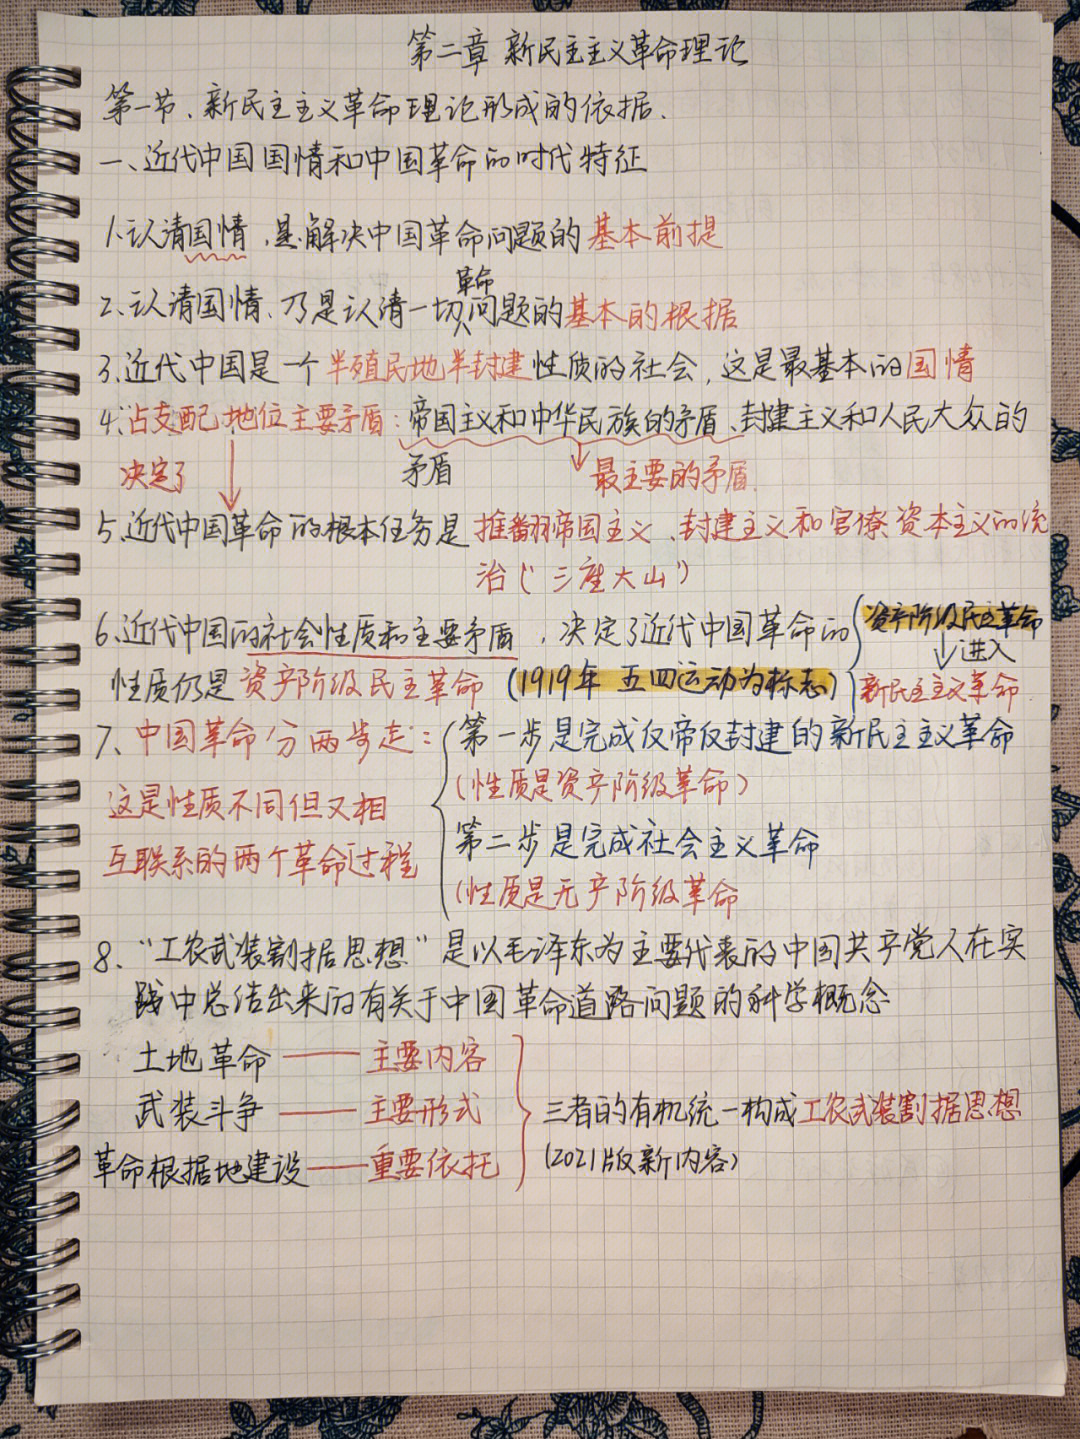 第二章 新民主主义革命理论
第一节、新民主主义革命理论形成的依据.
一、近代中国国情和中国革命的时代特征
1.认清国情,是解决中国革命问题的基本前提
革命
2.认清国情、乃是认清一切问题的基本的根据
3.近代中国是一个半殖民地半封建性质的社会,这是最基本的国情
4.占支配地位主要矛盾:帝国主义和中华民族的矛盾、封建主义和人民大众的
决定了 矛盾 最主要的矛盾.
5.近代中国革命的根本任务是推翻帝国主义、封建主义和官僚资本主义的统
治(“三座大山”)
6.近代中国的社会性质和主要矛盾,决定了近代中国革命的 资产阶级民主革命
进入
性质仍是资产阶级民主革命 (1919年 五四运动为标志) 新民主主义革命.
7、中国革命分两步走: 第一步是完成反帝反封建的新民主主义革命
这是性质不同但又相 (性质是资产阶级革命)
第二步是完成社会主义革命
互联系的两个革命过程
(性质是无产阶级革命
8、“工农武装割据思想”是以毛泽东为主要代表的中国共产党人在实
践中总结出来的有关于中国革命道路问题的科学概念
土地革命——主要内容
武装斗争——主要形式 三者的有机统一构成工农武装割据思想
革命根据地建设——重要依托 (2021版新内容)